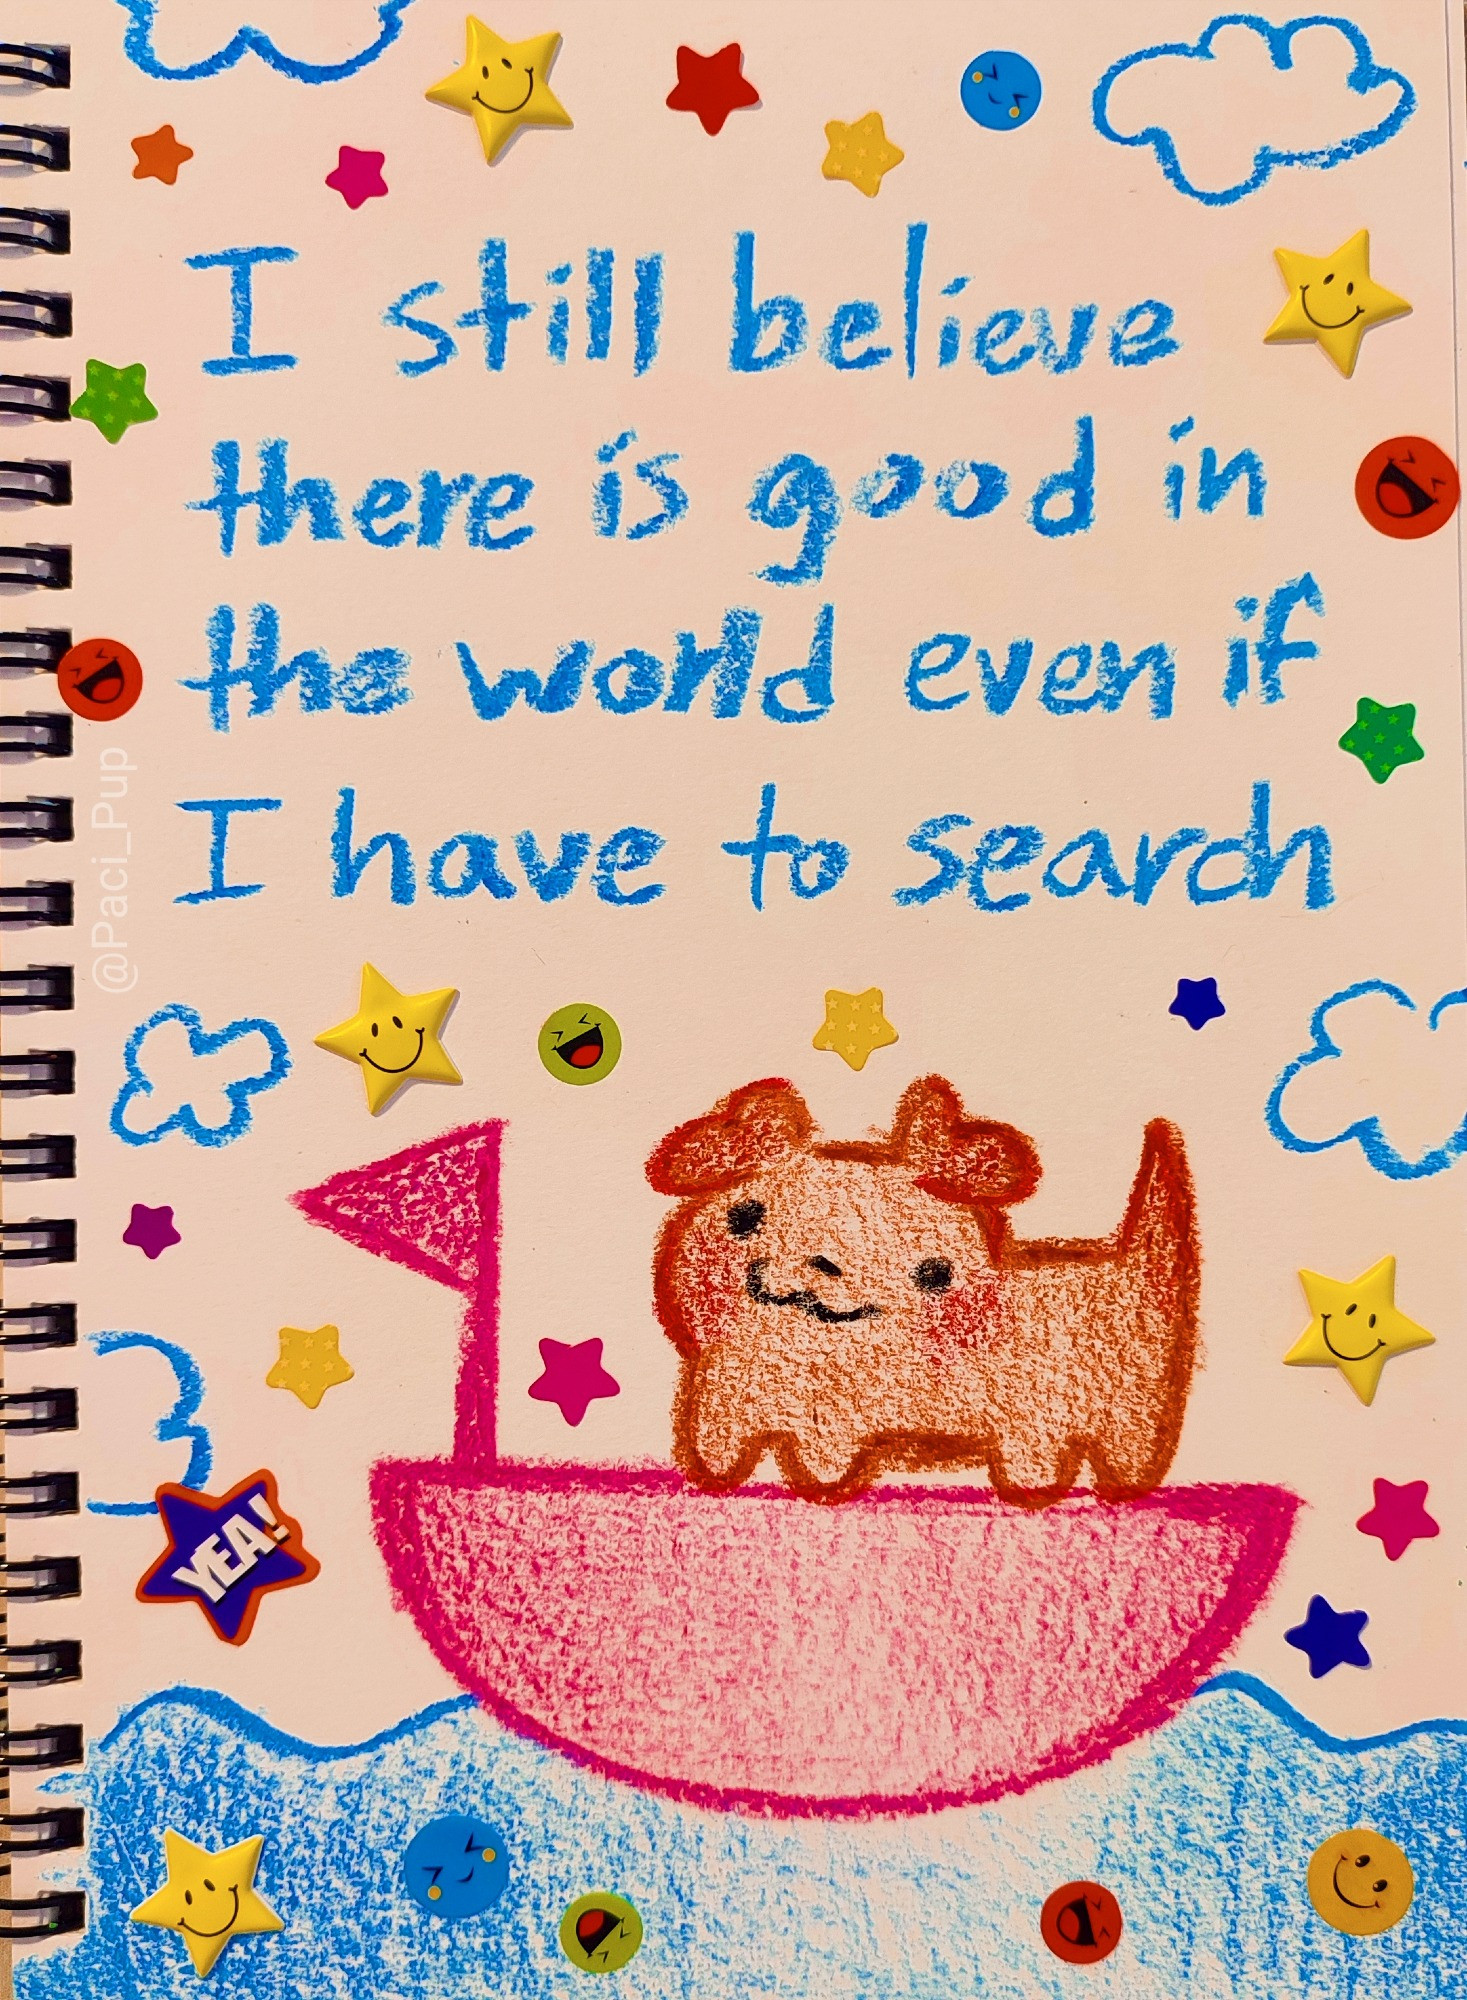 I still believe
there is good in
the world even if
I have to search
@Paci_Pup
YEA!